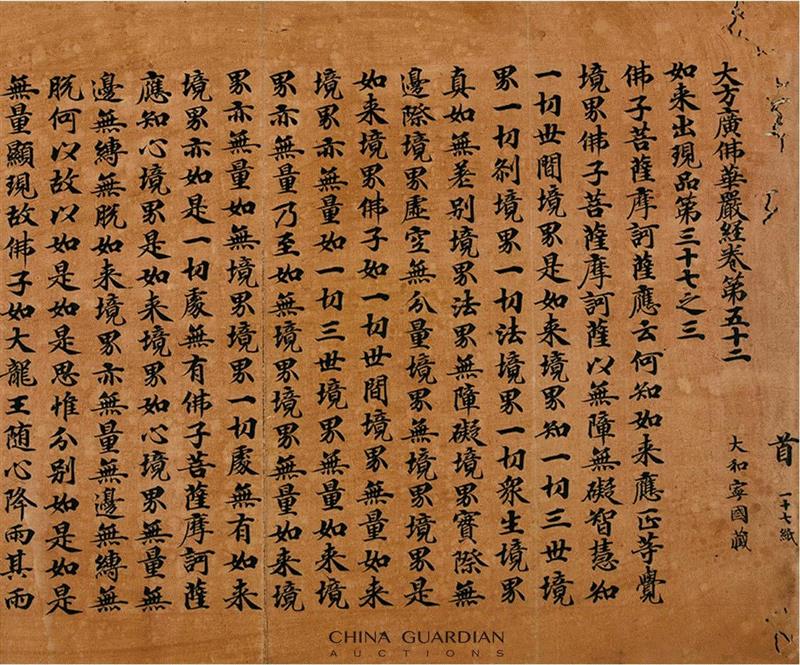 首 一十七紙
大方廣佛華嚴經卷第五十二
大和寧國藏
如来出現品第三十七之三
佛子菩薩摩訶薩應云何知如来應正等覺
境界佛子菩薩摩訶薩以無障無礙智慧知
一切世間境界是如来境界知一切三世境
界一切刹境界一切法境界一切衆生境界
真如無差别境界法界無障礙境界實際無
邊際境界虛空無分量境界無境界境界是
如来境界佛子如一切世間境界無量如来
境界亦無量如一切三世境界無量如来境
界亦無量乃至如無境界境界無量如来境
界亦無量如無境界境界一切處無有如来
境界亦如是一切處無有佛子菩薩摩訶薩
應知心境界是如来境界如心境界無量無
邊無縛無脱如来境界亦無量無邊無縛無
脱何以故以如是如是思惟分别如是如是
無量顯現故佛子如大龍王随心降雨其雨
CHINA GUARDIAN
AUCTIONS